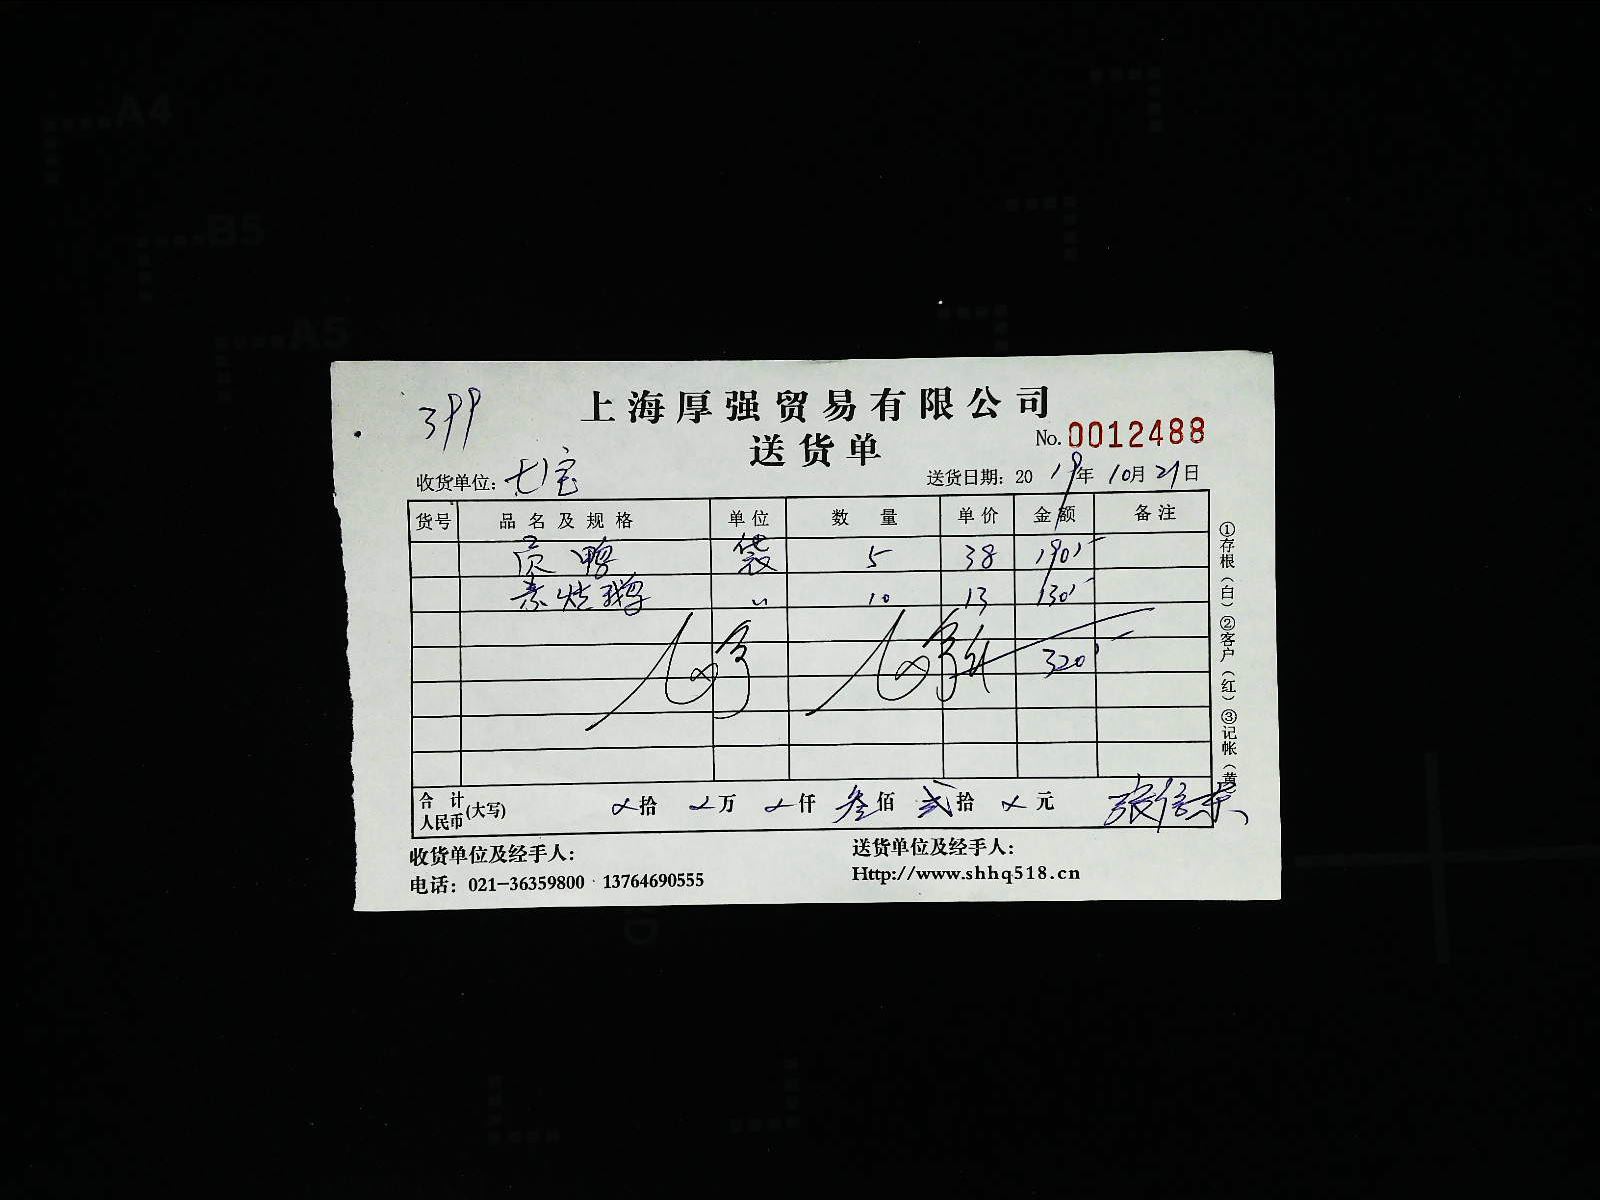 A4
B5
A5
399
上海厚强贸易有限公司
送货单
No.0012488
收货单位：七宝
送货日期：2019年10月21日
货号 品名及规格 单位 数量 单价 金额 备注
鸭 袋 5 38 190
素烧鹅 〃 10 13 130
320
合计人民币(大写) 拾 万 仟 叁佰 贰拾 元
①存根（白）②客户（红）③记帐（黄）
收货单位及经手人：
送货单位及经手人：
电话：021-36359800 13764690555
Http://www.shhq518.cn